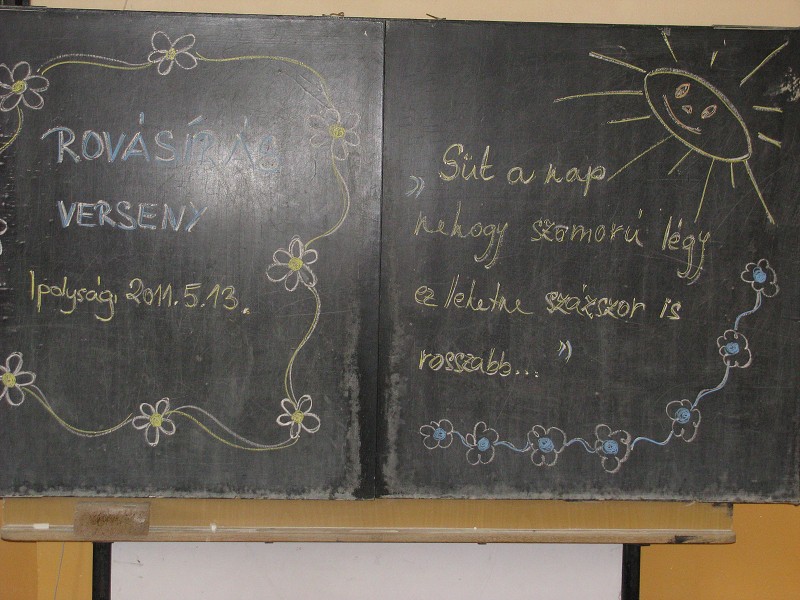 ROVÁSÍRÁS
VERSENY
Ipolyság, 2011.5.13.
„Süt a nap
nehogy szomorú légy
ez lehetne százszor is
rosszabb..."